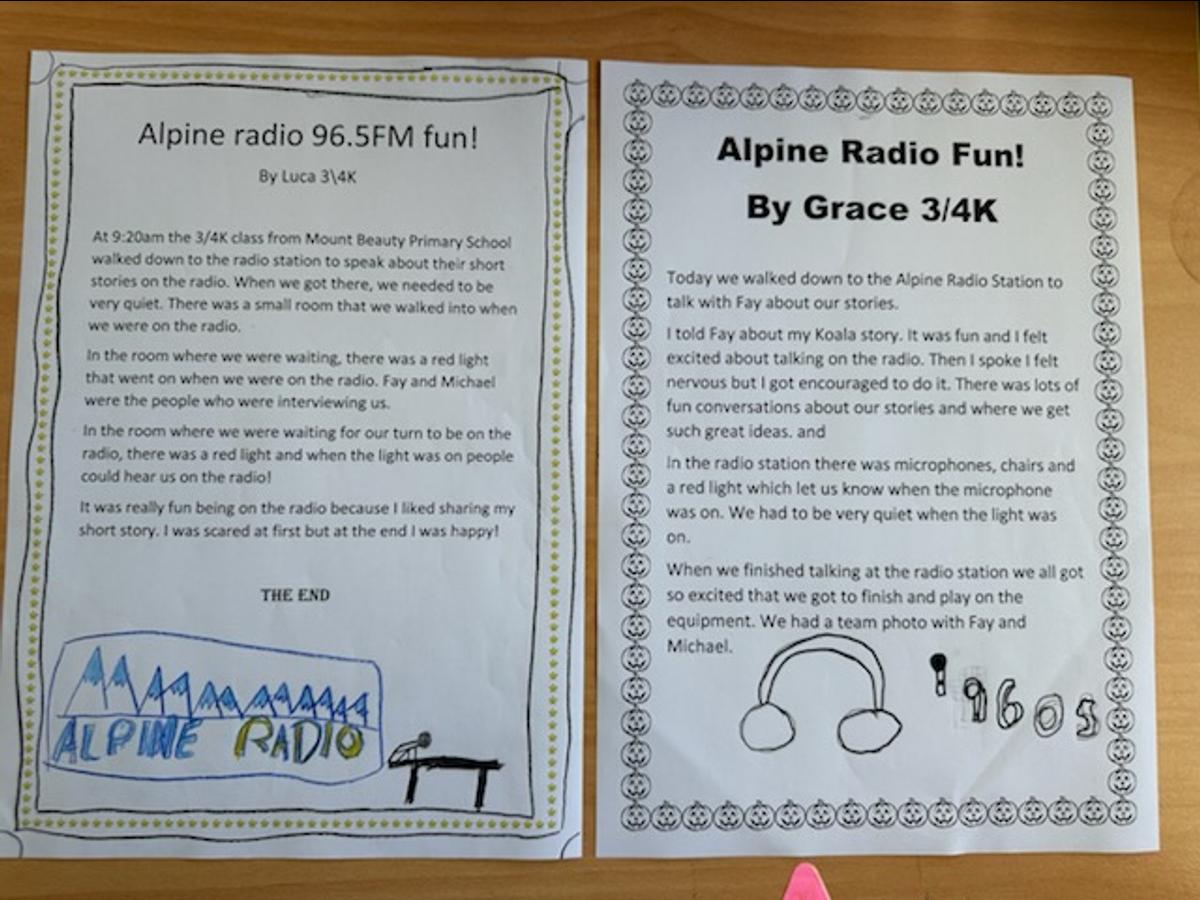 Alpine radio 96.5FM fun!
By Luca 3\4K
At 9:20am the 3/4K class from Mount Beauty Primary School
walked down to the radio station to speak about their short
stories on the radio. When we got there, we needed to be
very quiet. There was a small room that we walked into when
we were on the radio.
In the room where we were waiting, there was a red light
that went on when we were on the radio. Fay and Michael
were the people who were interviewing us.
In the room where we were waiting for our turn to be on the
radio, there was a red light and when the light was on people
could hear us on the radio!
It was really fun being on the radio because I liked sharing my
short story. I was scared at first but at the end I was happy!
THE END
ALPINE RADIO
Alpine Radio Fun!
By Grace 3/4K
Today we walked down to the Alpine Radio Station to
talk with Fay about our stories.
I told Fay about my Koala story. It was fun and I felt
excited about talking on the radio. Then I spoke I felt
nervous but I got encouraged to do it. There was lots of
fun conversations about our stories and where we get
such great ideas. and
In the radio station there was microphones, chairs and
a red light which let us know when the microphone
was on. We had to be very quiet when the light was
on.
When we finished talking at the radio station we all got
so excited that we got to finish and play on the
equipment. We had a team photo with Fay and
Michael.
9605